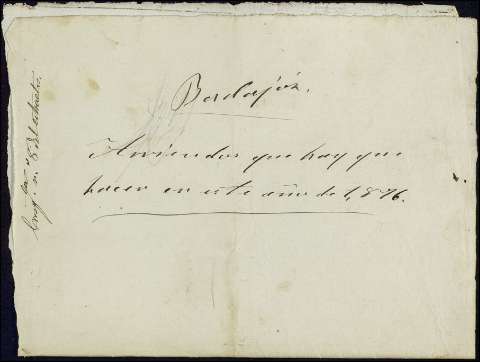 Badajóz.
Arriendos que hay que
hacer en este año de 1,876.